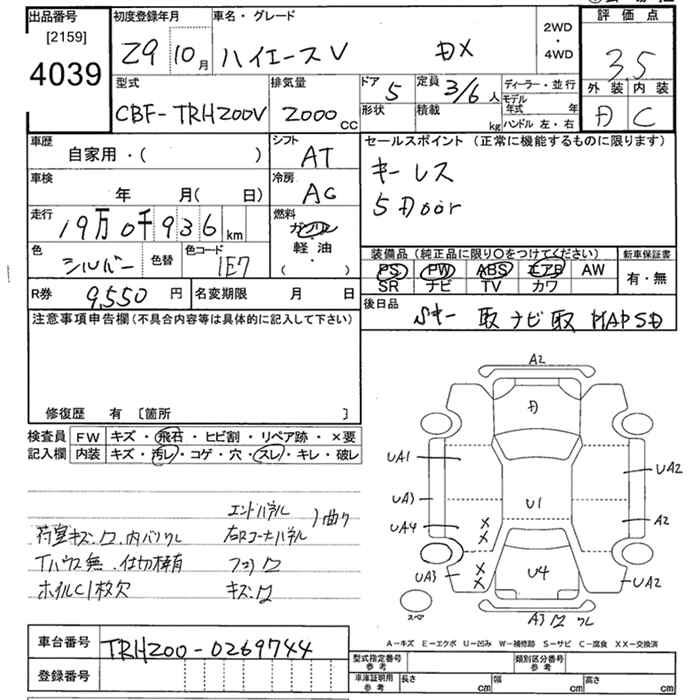 出品番号
[2159]
4039
初度登録年月
29 10月
車名・グレード
ハイエースV DX
2WD
・
4WD
評価点
3.5
外装 内装
D C
型式
CBF-TRH200V
排気量
2000cc
ドア
5
定員
3/6人
形状
積載
kg
ディーラー・並行
モデル年式 年
ハンドル 左・右
車歴
自家用・( )
シフト
AT
セールスポイント (正常に機能するものに限ります)
キーレス
5Door
車検
年 月( 日)
冷房
AC
走行
19万0千936km
燃料
ガソリン
・
軽油
・
( )
色
シルバー
色替
色コード
1E7
装備品(純正品に限り○をつけてください)
PS PW ABS エアB AW
SR ナビ TV カワ
新車保証書
有・無
R券
9,550円
名変期限 月 日
後日品
Sキー 取 ナビ取 MAPSD
注意事項申告欄(不具合内容等は具体的に記入して下さい)
修復歴 有 [箇所 ]
検査員
記入欄
FW キズ・飛石・ヒビ割・リペア跡・×要
内装 キズ・汚レ・コゲ・穴・スレ・キレ・破レ
エンドパネル
右Rコーナーパネル
曲り
荷室キズ凹、内バリワレ
Tハウス無、仕切棒有
フロア凹
ホイルC1枚欠
キズ凹
A2
D
UA1
UA2
UA3
U1
UA4
A2
UA3
U4
UA2
スペア
A3凹ワレ
A-キズ E-エクボ U-凹み W-補修跡 S-サビ C-腐食 XX-交換済
車台番号
TRH200-0269744
登録番号
型式指定番号
参考
類別区分番号
参考
車庫証明用
参考
長さ cm
幅 cm
高さ cm